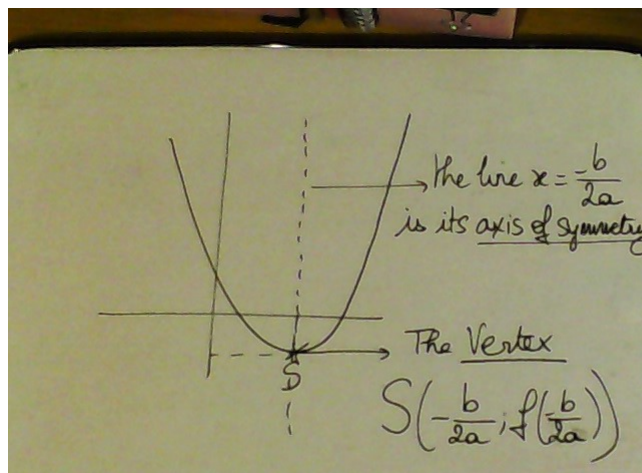 the line x = -b/2a
is its axis of symmetry
The Vertex
S
S(-b/2a ; f(-b/2a))